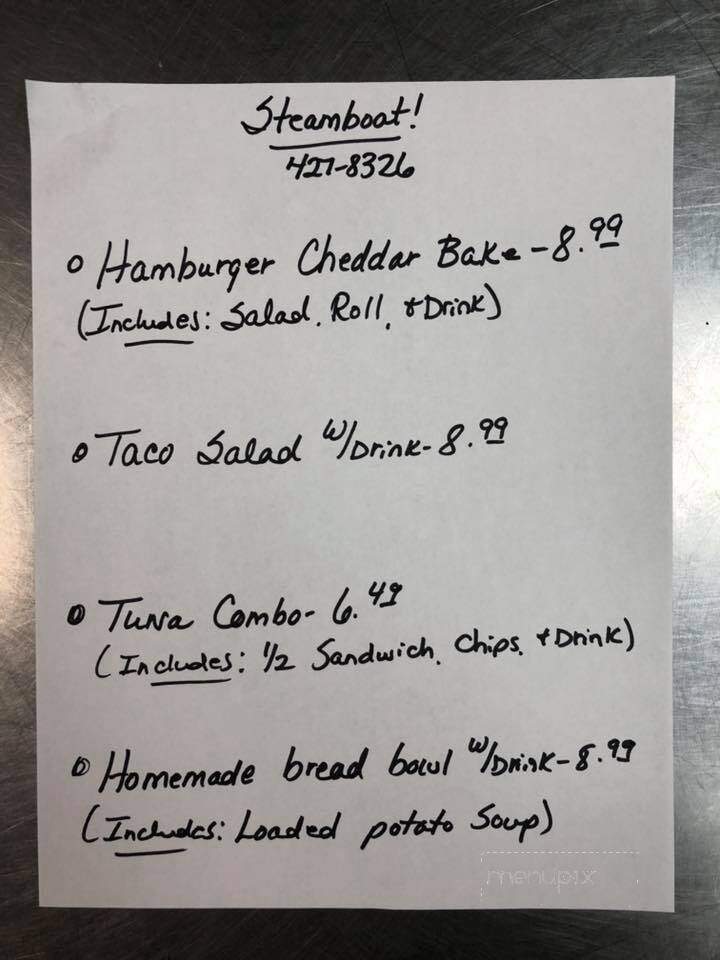 Steamboat!
427-8326
Hamburger Cheddar Bake - 8.99
(Includes: Salad, Roll, & Drink)
Taco Salad w/Drink - 8.99
Tuna Combo - 6.49
(Includes: 1/2 Sandwich, Chips, & Drink)
Homemade bread bowl w/Drink - 8.99
(Includes: Loaded potato Soup)
menupix